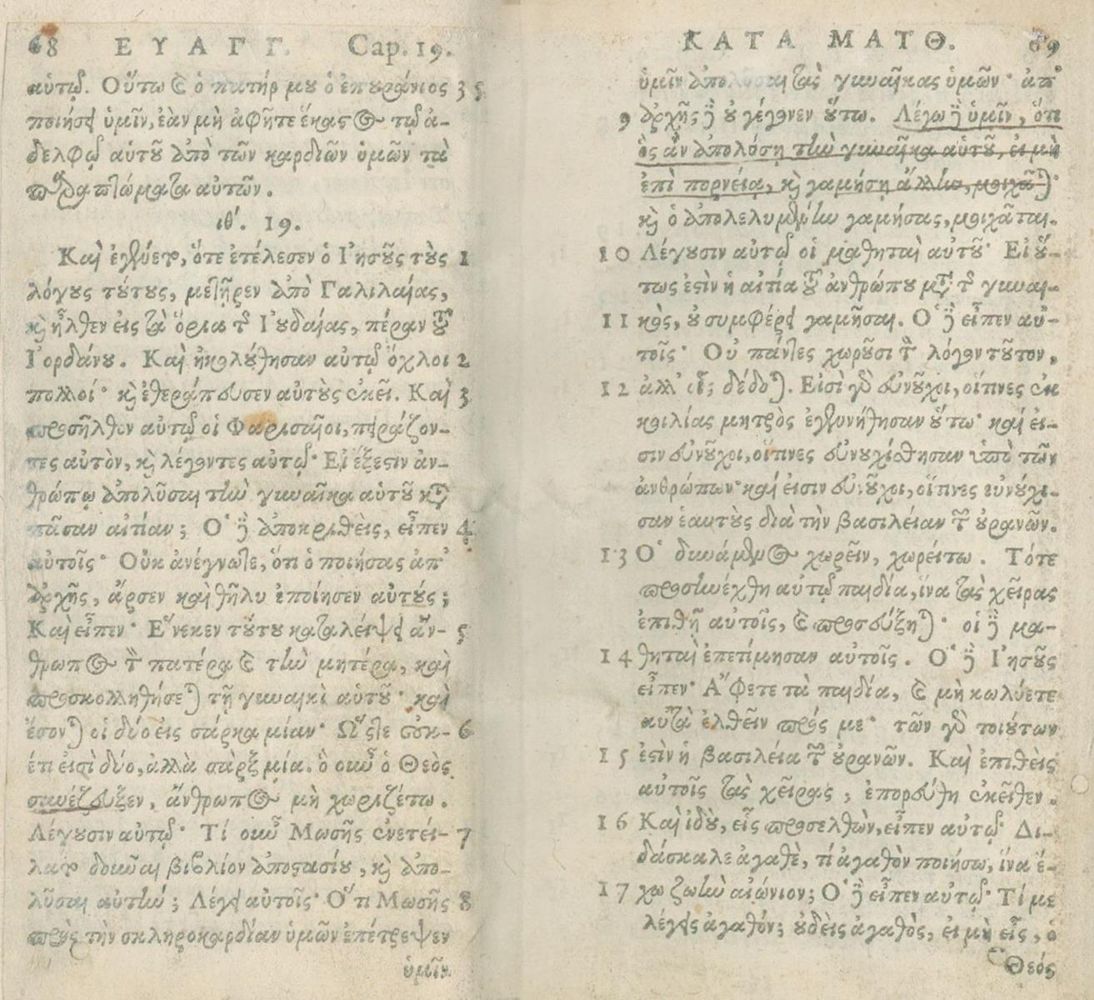 68 ΕΥΑΓΓ. Cap. 19.
αὐτῷ. Οὕτω καὶ ὁ πατήρ μου ὁ ἐπουράνιος 35
ποιήσει ὑμῖν, ἐὰν μὴ ἀφῆτε ἕκαστος τῷ ἀ-
δελφῷ αὑτοῦ ἀπὸ τῶν καρδιῶν ὑμῶν τὰ
παραπτώματα αὐτῶν.
ιθ'. 19.
Καὶ ἐγένετο, ὅτε ἐτέλεσεν ὁ Ἰησοῦς τοὺς 1
λόγους τούτους, μετῆρεν ἀπὸ Γαλιλαίας,
καὶ ἦλθεν εἰς τὰ ὅρια τῆς Ἰουδαίας, πέραν τοῦ
Ἰορδάνου. Καὶ ἠκολούθησαν αὐτῷ ὄχλοι 2
πολλοί· καὶ ἐθεράπευσεν αὐτοὺς ἐκεῖ. Καὶ 3
προσῆλθον αὐτῷ οἱ Φαρισαῖοι, πειράζον-
τες αὐτὸν, καὶ λέγοντες αὐτῷ· Εἰ ἔξεστιν ἀν-
θρώπῳ ἀπολῦσαι τὴν γυναῖκα αὑτοῦ κατὰ
πᾶσαν αἰτίαν; Ὁ δὲ ἀποκριθεὶς, εἶπεν 4
αὐτοῖς· Οὐκ ἀνέγνωτε, ὅτι ὁ ποιήσας ἀπ'
ἀρχῆς, ἄρσεν καὶ θῆλυ ἐποίησεν αὐτούς;
Καὶ εἶπεν· Ἕνεκεν τούτου καταλείψει ἄν- 5
θρωπος τὸν πατέρα καὶ τὴν μητέρα, καὶ
προσκολληθήσεται τῇ γυναικὶ αὑτοῦ· καὶ
ἔσονται οἱ δύο εἰς σάρκα μίαν· Ὥστε οὐκ- 6
έτι εἰσὶ δύο, ἀλλὰ σὰρξ μία. ὃ οὖν ὁ Θεὸς
συνέζευξεν, ἄνθρωπος μὴ χωριζέτω.
Λέγουσιν αὐτῷ· Τί οὖν Μωσῆς ἐνετεί- 7
λατο δοῦναι βιβλίον ἀποστασίου, καὶ ἀπο-
λῦσαι αὐτήν; Λέγει αὐτοῖς· Ὅτι Μωσῆς 8
πρὸς τὴν σκληροκαρδίαν ὑμῶν ἐπέτρεψεν
ὑμῖν
ΚΑΤΑ ΜΑΤΘ. 69
ὑμῖν ἀπολῦσαι τὰς γυναῖκας ὑμῶν· ἀπ'
9 ἀρχῆς δὲ οὐ γέγονεν οὕτω. Λέγω δὲ ὑμῖν, ὅτι
ὃς ἂν ἀπολύσῃ τὴν γυναῖκα αὑτοῦ, εἰ μὴ
ἐπὶ πορνείᾳ, καὶ γαμήσῃ ἄλλην, μοιχᾶται·
καὶ ὁ ἀπολελυμένην γαμήσας, μοιχᾶται.
10 Λέγουσιν αὐτῷ οἱ μαθηταὶ αὐτοῦ· Εἰ οὕ-
τως ἐστὶν ἡ αἰτία τοῦ ἀνθρώπου μετὰ τῆς γυναι-
11 κὸς, οὐ συμφέρει γαμῆσαι. Ὁ δὲ εἶπεν αὐ-
τοῖς· Οὐ πάντες χωροῦσι τὸν λόγον τοῦτον,
12 ἀλλ' οἷς δέδοται. Εἰσὶ γὰρ εὐνοῦχοι, οἵτινες ἐκ
κοιλίας μητρὸς ἐγεννήθησαν οὕτω· καί εἰ-
σιν εὐνοῦχοι, οἵτινες εὐνουχίσθησαν ὑπὸ τῶν
ἀνθρώπων· καί εἰσιν εὐνοῦχοι, οἵτινες εὐνούχι-
σαν ἑαυτοὺς διὰ τὴν βασιλείαν τῶν οὐρανῶν.
13 Ὁ δυνάμενος χωρεῖν, χωρείτω. Τότε
προσηνέχθη αὐτῷ παιδία, ἵνα τὰς χεῖρας
ἐπιθῇ αὐτοῖς, καὶ προσεύξηται· οἱ δὲ μα-
14 θηταὶ ἐπετίμησαν αὐτοῖς. Ὁ δὲ Ἰησοῦς
εἶπεν· Ἄφετε τὰ παιδία, καὶ μὴ κωλύετε
αὐτὰ ἐλθεῖν πρός με· τῶν γὰρ τοιούτων
15 ἐστὶν ἡ βασιλεία τῶν οὐρανῶν. Καὶ ἐπιθεὶς
αὐτοῖς τὰς χεῖρας, ἐπορεύθη ἐκεῖθεν.
16 Καὶ ἰδοὺ, εἷς προσελθὼν, εἶπεν αὐτῷ· Δι-
δάσκαλε ἀγαθὲ, τί ἀγαθὸν ποιήσω, ἵνα ἔ-
17 χω ζωὴν αἰώνιον; Ὁ δὲ εἶπεν αὐτῷ· Τί με
λέγεις ἀγαθόν; οὐδεὶς ἀγαθὸς, εἰ μὴ εἷς, ὁ
Θεός